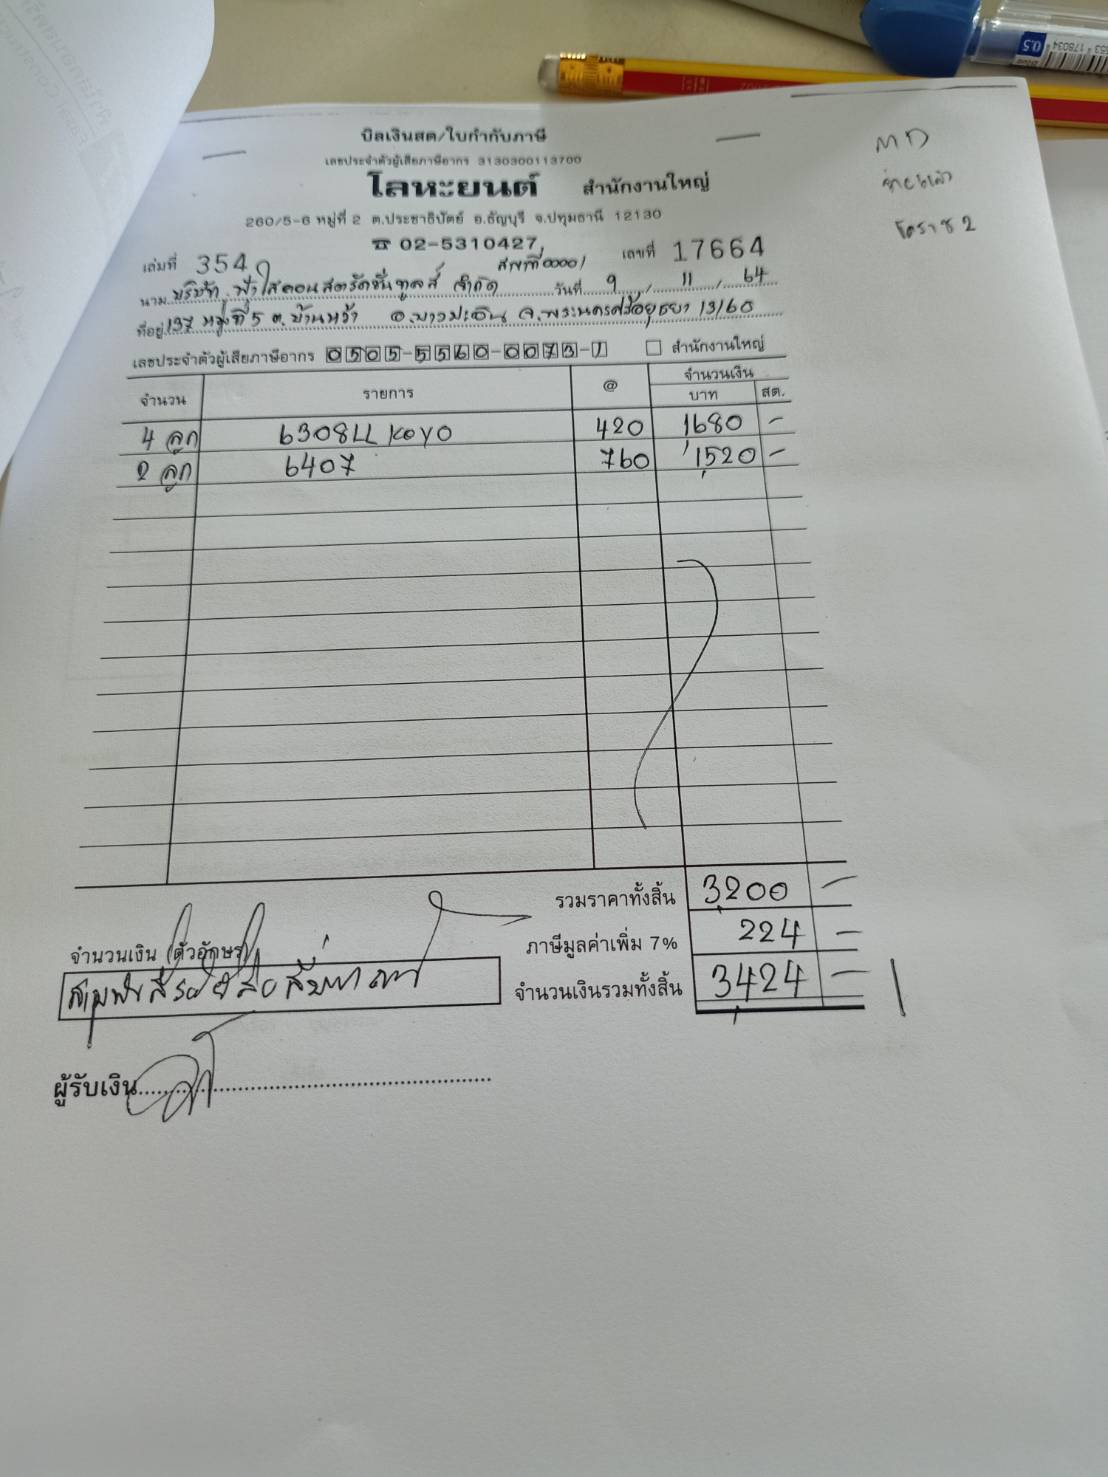 บิลเงินสด/ใบกำกับภาษี
เลขประจำตัวผู้เสียภาษีอากร 3130300113700
โลหะยนต์ สำนักงานใหญ่
260/5-6 หมู่ที่ 2 ต.ประชาธิปัตย์ อ.ธัญบุรี จ.ปทุมธานี 12130
☎ 02-5310427
เล่มที่ 354 เลขที่ 17664
สาขาที่ 00001
นาม บริษัท จำกัด วันที่ 9 / 11 / 64
ที่อยู่ 137 หมู่ที่ 5 ต.บ้านหว้า อ.บางปะอิน จ.พระนครศรีอยุธยา 13160
เลขประจำตัวผู้เสียภาษีอากร 0505-5560-0073-1 สำนักงานใหญ่
จำนวน รายการ @ จำนวนเงิน
บาท สต.
4 ลูก 6308LL KOYO 420 1680 -
2 ลูก 6407 760 1,520 -
รวมราคาทั้งสิ้น 3,200 -
ภาษีมูลค่าเพิ่ม 7% 224 -
จำนวนเงิน (ตัวอักษร)
จำนวนเงินรวมทั้งสิ้น 3,424 -
ผู้รับเงิน
MD
โคราช 2
0.5